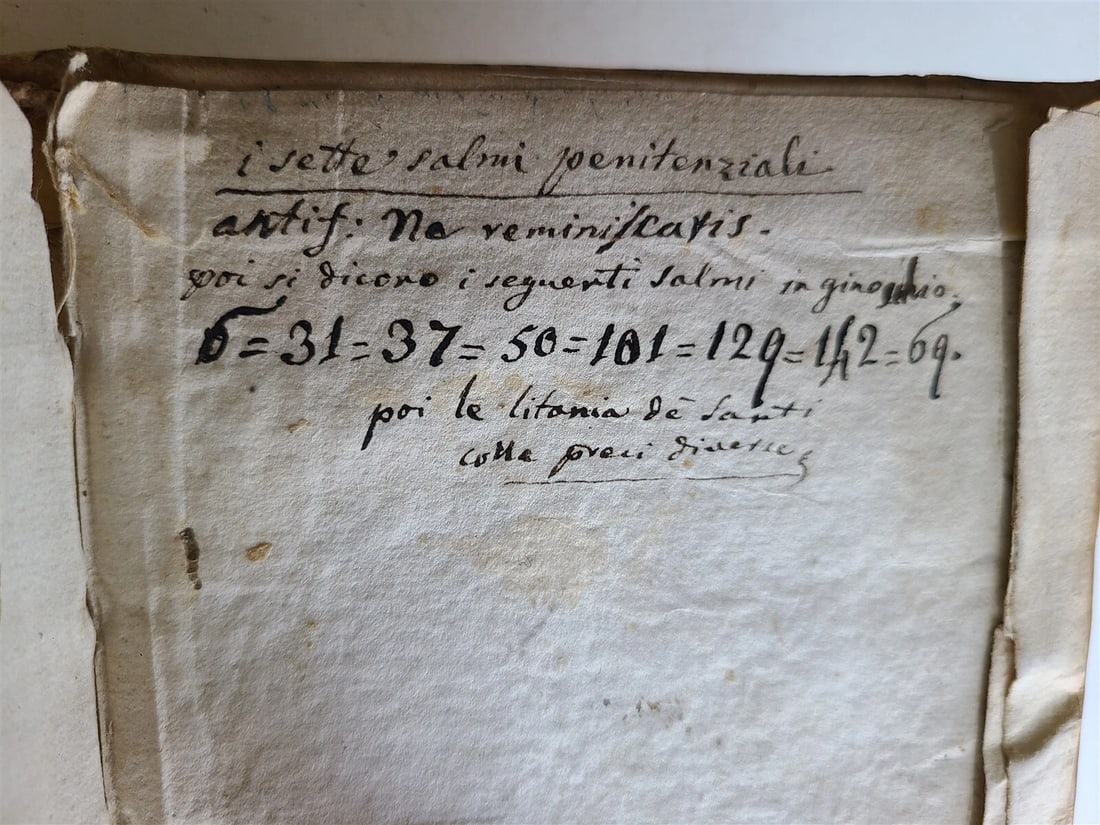 i sette salmi penitenziali
antif: Ne reminiscaris.
poi si dicono i seguenti salmi in ginochio:
6=31=37=50=101=129=142=69.
poi le litania dè Santi
colle preci diverse